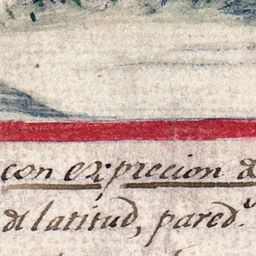 con exprecion d
de latitud, pared.